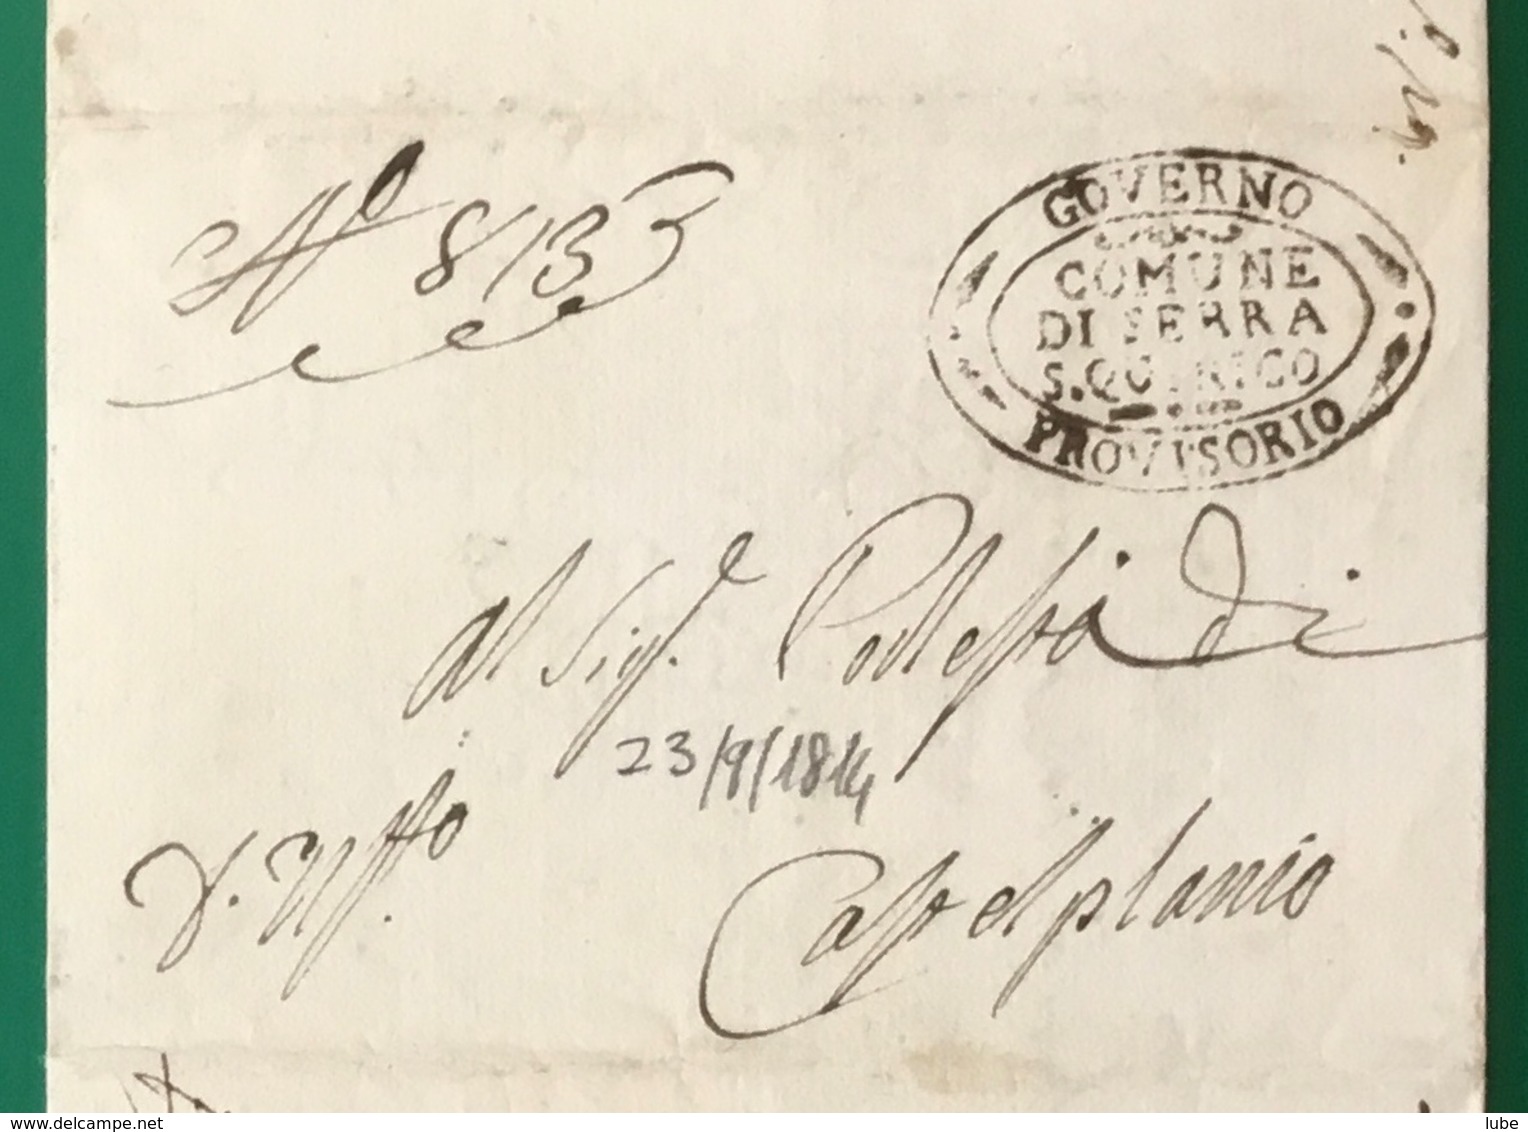 N.o 813
GOVERNO
COMUNE
DI SERRA
S.QUIRICO
PROVISORIO
Al Sig.e Podestà di
23/8/1814
D'Uff.o
Castelplanio
www.delcampe.net
lube